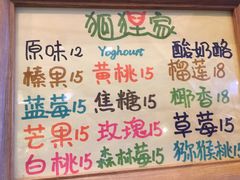 狐狸家
原味12 Yoghourt 酸奶酪
榛果15 黄桃15 榴莲18
蓝莓15 焦糖15 椰香18
芒果15 玫瑰15 草莓15
白桃15 森林莓15 猕猴桃15